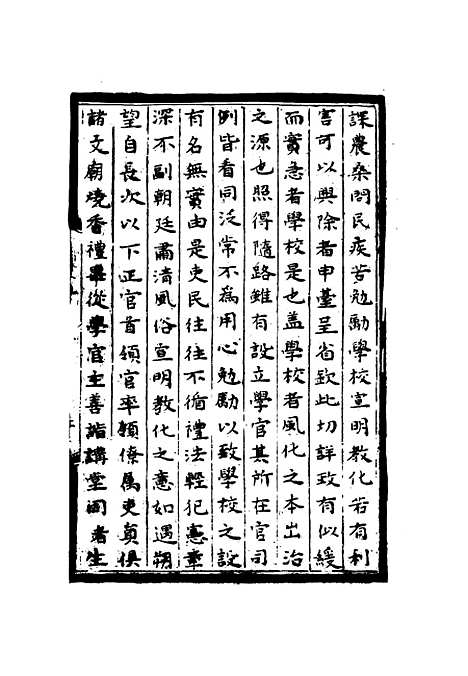 課農桑問民疾苦勉勵學校宣明教化若有利
害可以興除者申臺呈省欽此切詳政有似緩
而實急者學校是也蓋學校者風化之本出治
之源也照得隨路雖有設立學官其所在官司
例皆看同泛常不爲用心勉勵以致學校之設
有名無實由是吏民往往不循禮法輕犯憲章
深不副朝廷肅清風俗宣明教化之意如遇朔
望自長次以下正官首領官率領僚属吏員俱
諸文廟燒香禮畢從學官主善詣講堂同諸生